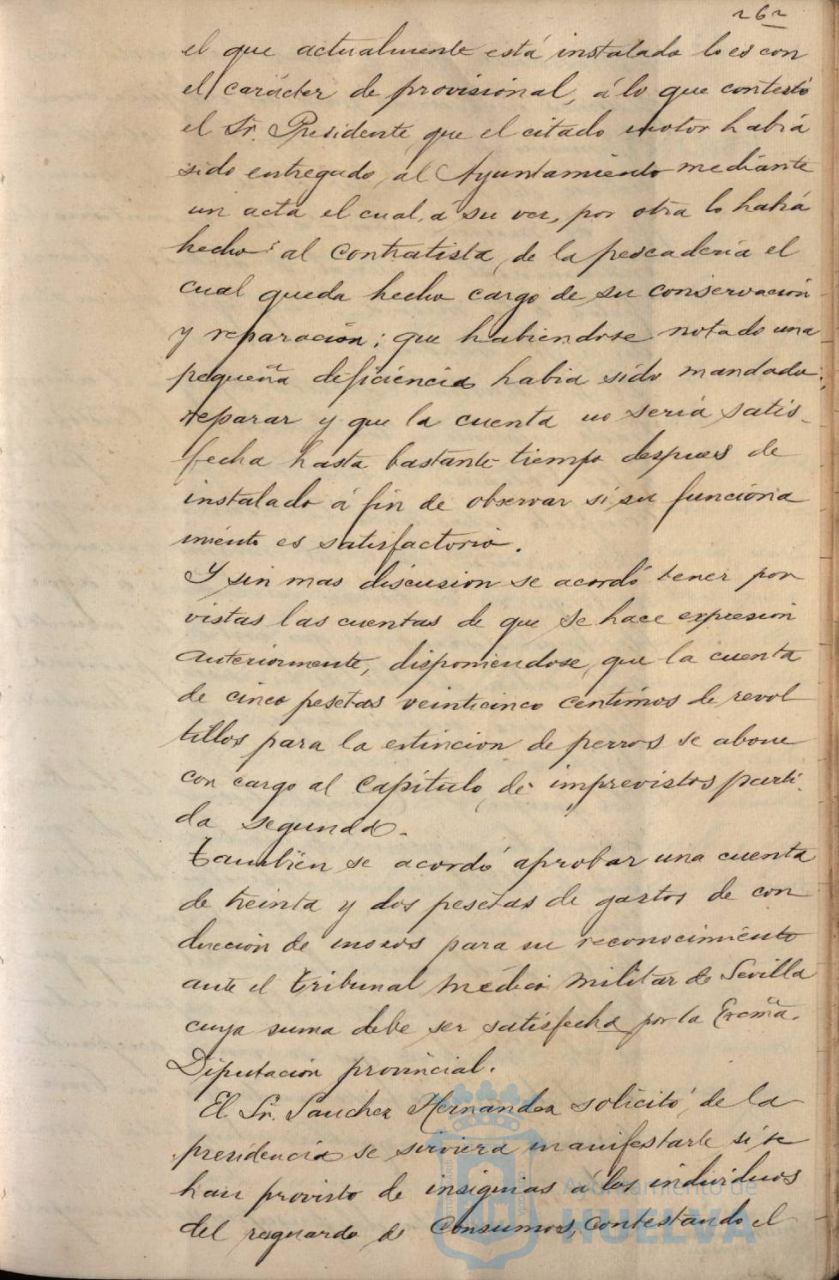 262
el que actualmente está instalado lo es con
el carácter de provisional, á lo que contestó
el Sr. Presidente que el citado motor había
sido entregado al Ayuntamiento mediante
un acta el cual, á su vez, por otra lo había
hecho al contratista de la pescadería el
cual queda hecho cargo de su conservación
y reparación; que habiendose notado una
pequeña deficiencia habia sido mandado
reparar y que la cuenta no sería satis-
fecha hasta bastante tiempo despues de
instalado á fin de observar si su funciona
miento es satisfactorio.
Y sin mas discusion se acordó tener por
vistas las cuentas de que se hace expresion
anteriormente, disponiendose, que la cuenta
de cinco pesetas veinticinco centimos de revol
tillos para la estincion de perros se abone
con cargo al Capítulo de imprevistos parti-
da segunda.
También se acordó aprobar una cuenta
de treinta y dos pesetas de gastos de con
ducción de mozos para su reconocimiento
ante el tribunal médico militar de Sevilla
cuya suma debe ser satisfecha por la Excmã.
Diputación provincial.
El Sr. Sanchez Hernandez solicitó de la
presidencia se sirviera manifestarle si se
han provisto de insignias á los individuos
del resguardo de Consumos, contestando el
Ayuntamiento de
HUELVA